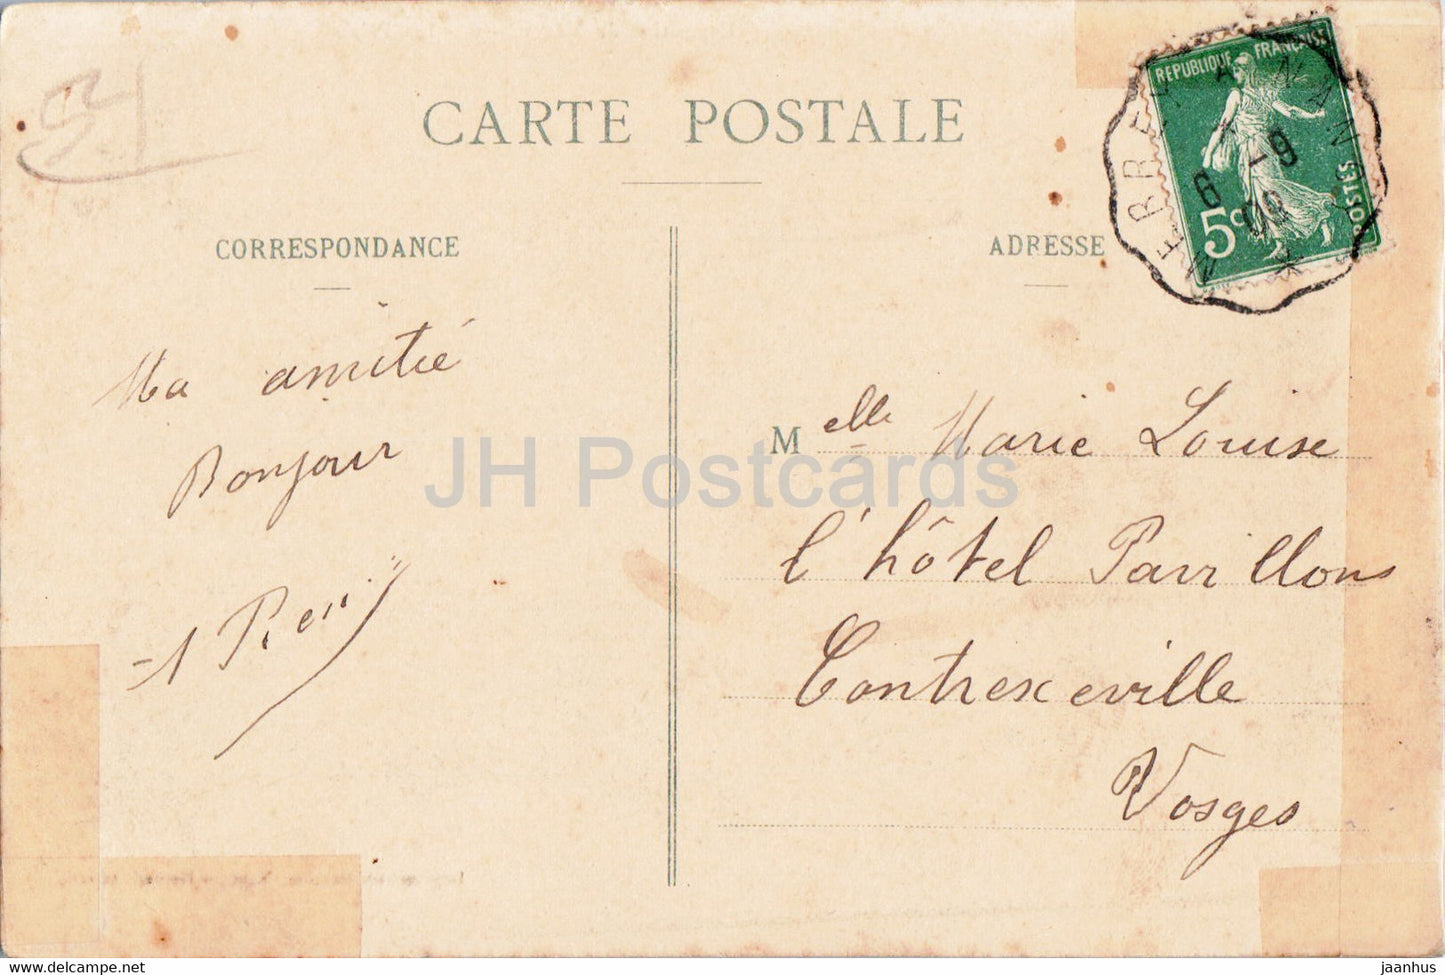 CARTE POSTALE
CORRESPONDANCE
ADRESSE
REPUBLIQUE FRANÇAISE
5c
POSTES
6 -9
09
Ma amitié
Bonjour
Melle Marie Louise
l'hôtel Pavillons
Contrexeville
Vosges
JH Postcards
www.delcampe.net
jaanhus